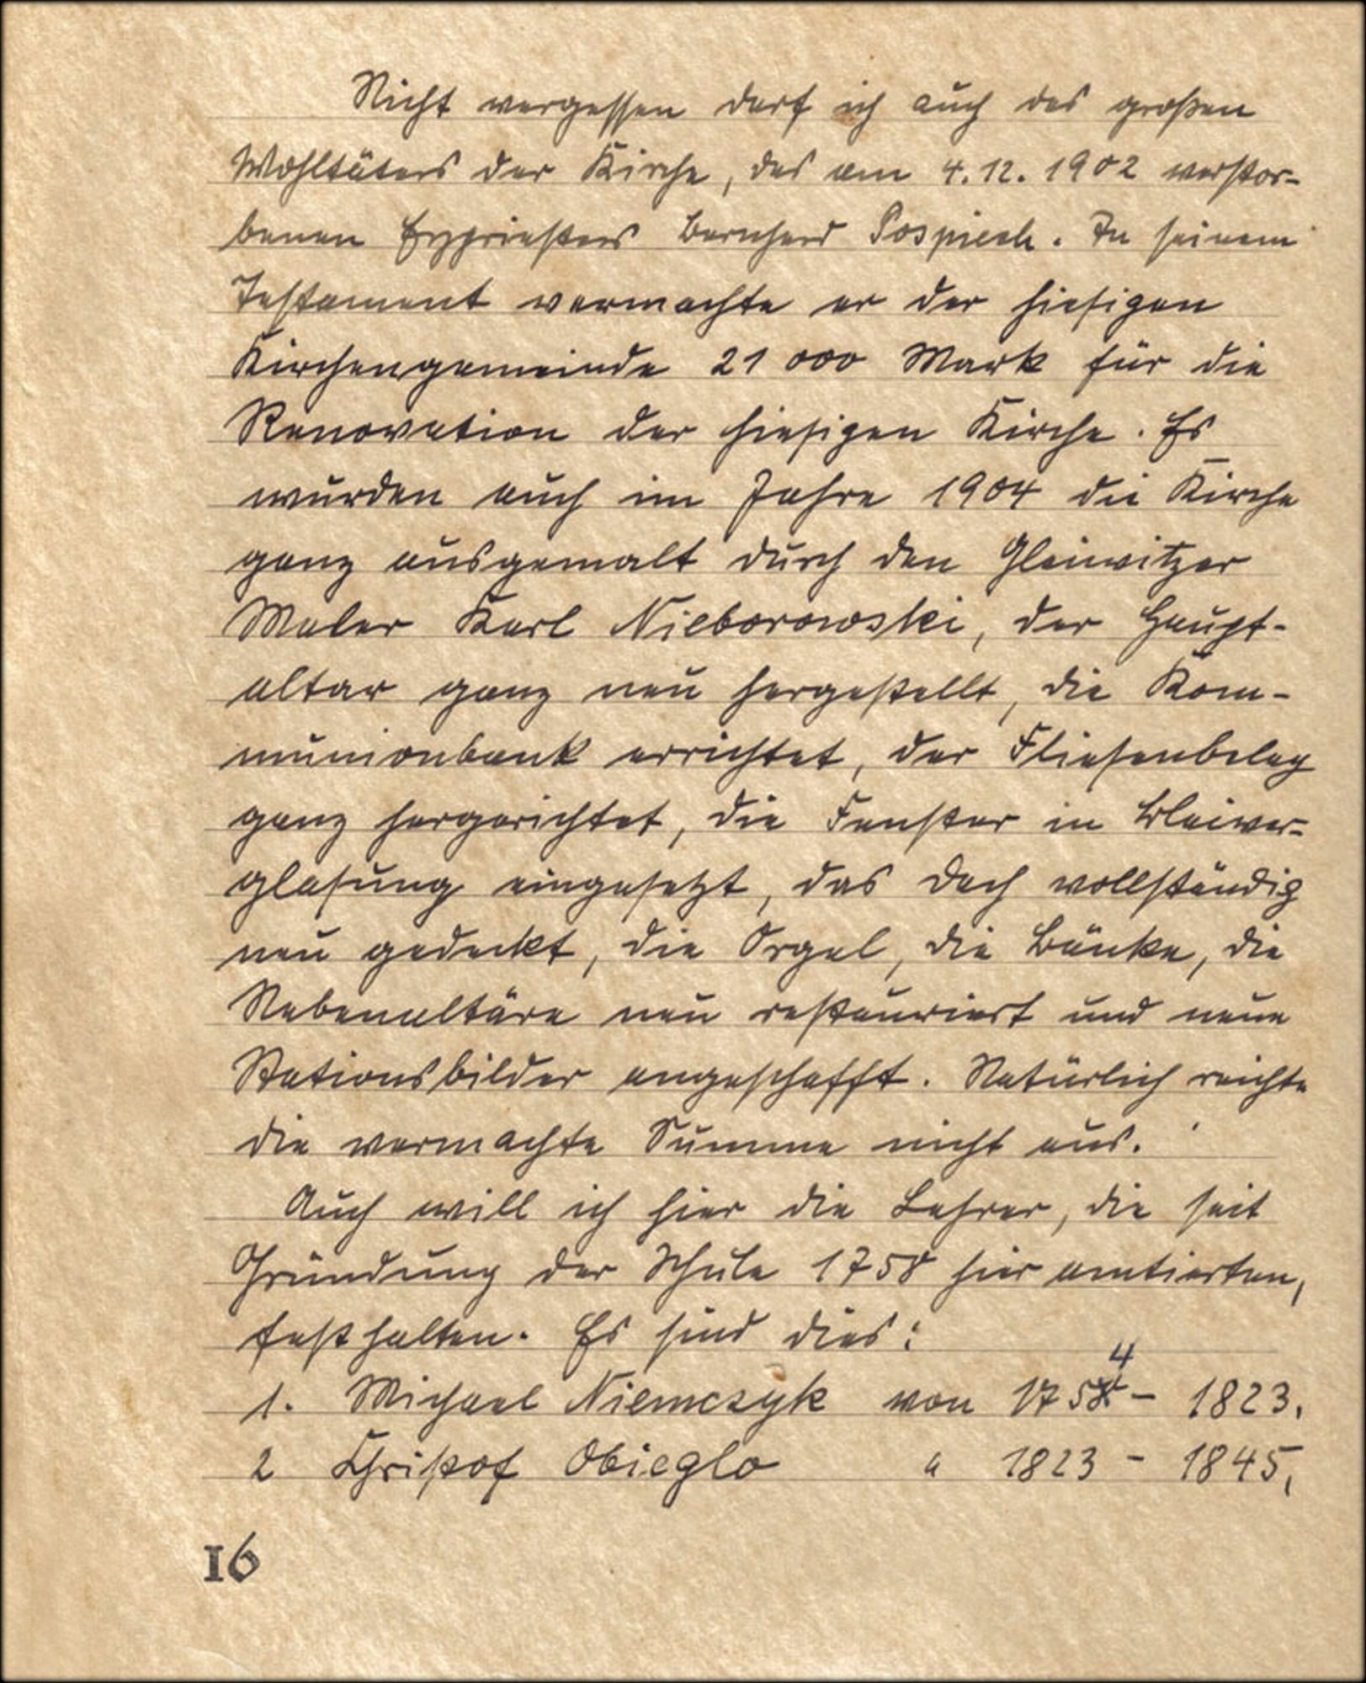 Nicht vergessen darf ich auch des großen
Wohltäters der Kirche, des am 4.12.1902 verstor-
benen Erzpriesters Bernhard Pospiech. In seinem
Testament vermachte er der hiesigen
Kirchengemeinde 21 000 Mark für die
Renovation der hiesigen Kirche. Es
wurden auch im Jahre 1904 die Kirche
ganz ausgemalt durch den Gleiwitzer
Maler Karl Nieborowski, der Haupt-
altar ganz neu hergestellt, die Kom-
munionbank errichtet, der Fliesenbelag
ganz hergerichtet, die Fenster in Bleiver-
glasung eingesetzt, das Dach vollständig
neu gedeckt, die Orgel, die Bänke, die
Nebenaltäre neu restauriert und neue
Stationsbilder angeschafft. Natürlich reichte
die vermachte Summe nicht aus.
Auch will ich hier die Lehrer, die seit
Gründung der Schule 1758 hier amtierten,
festhalten. Es sind dies:
1. Michael Niemczyk von 1754 - 1823.
2 Christof Obieglo " 1823 - 1845.
16